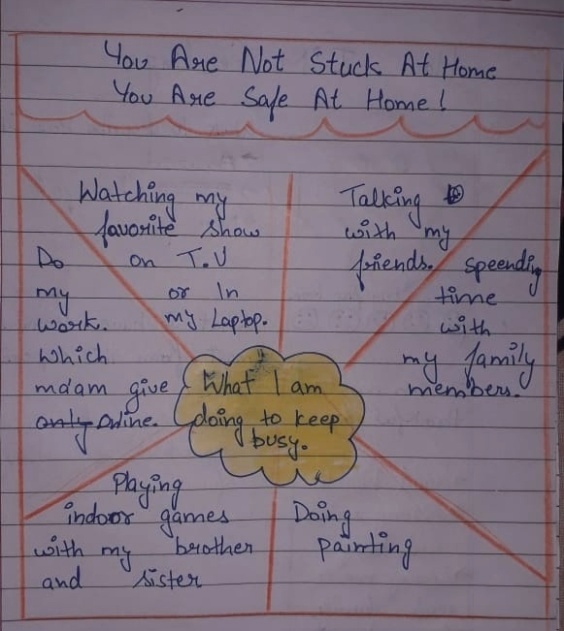 You Are Not Stuck At Home
You Are Safe At Home!
Watching my
favorite show
on T.V
or In
my Laptop.
Talking
with my
friends.
Speending
time
with
my family
members.
Do
my
work.
which
mdam give
only Online.
What I am
doing to keep
busy.
Playing
indoor games
with my brother
and sister
Doing
painting